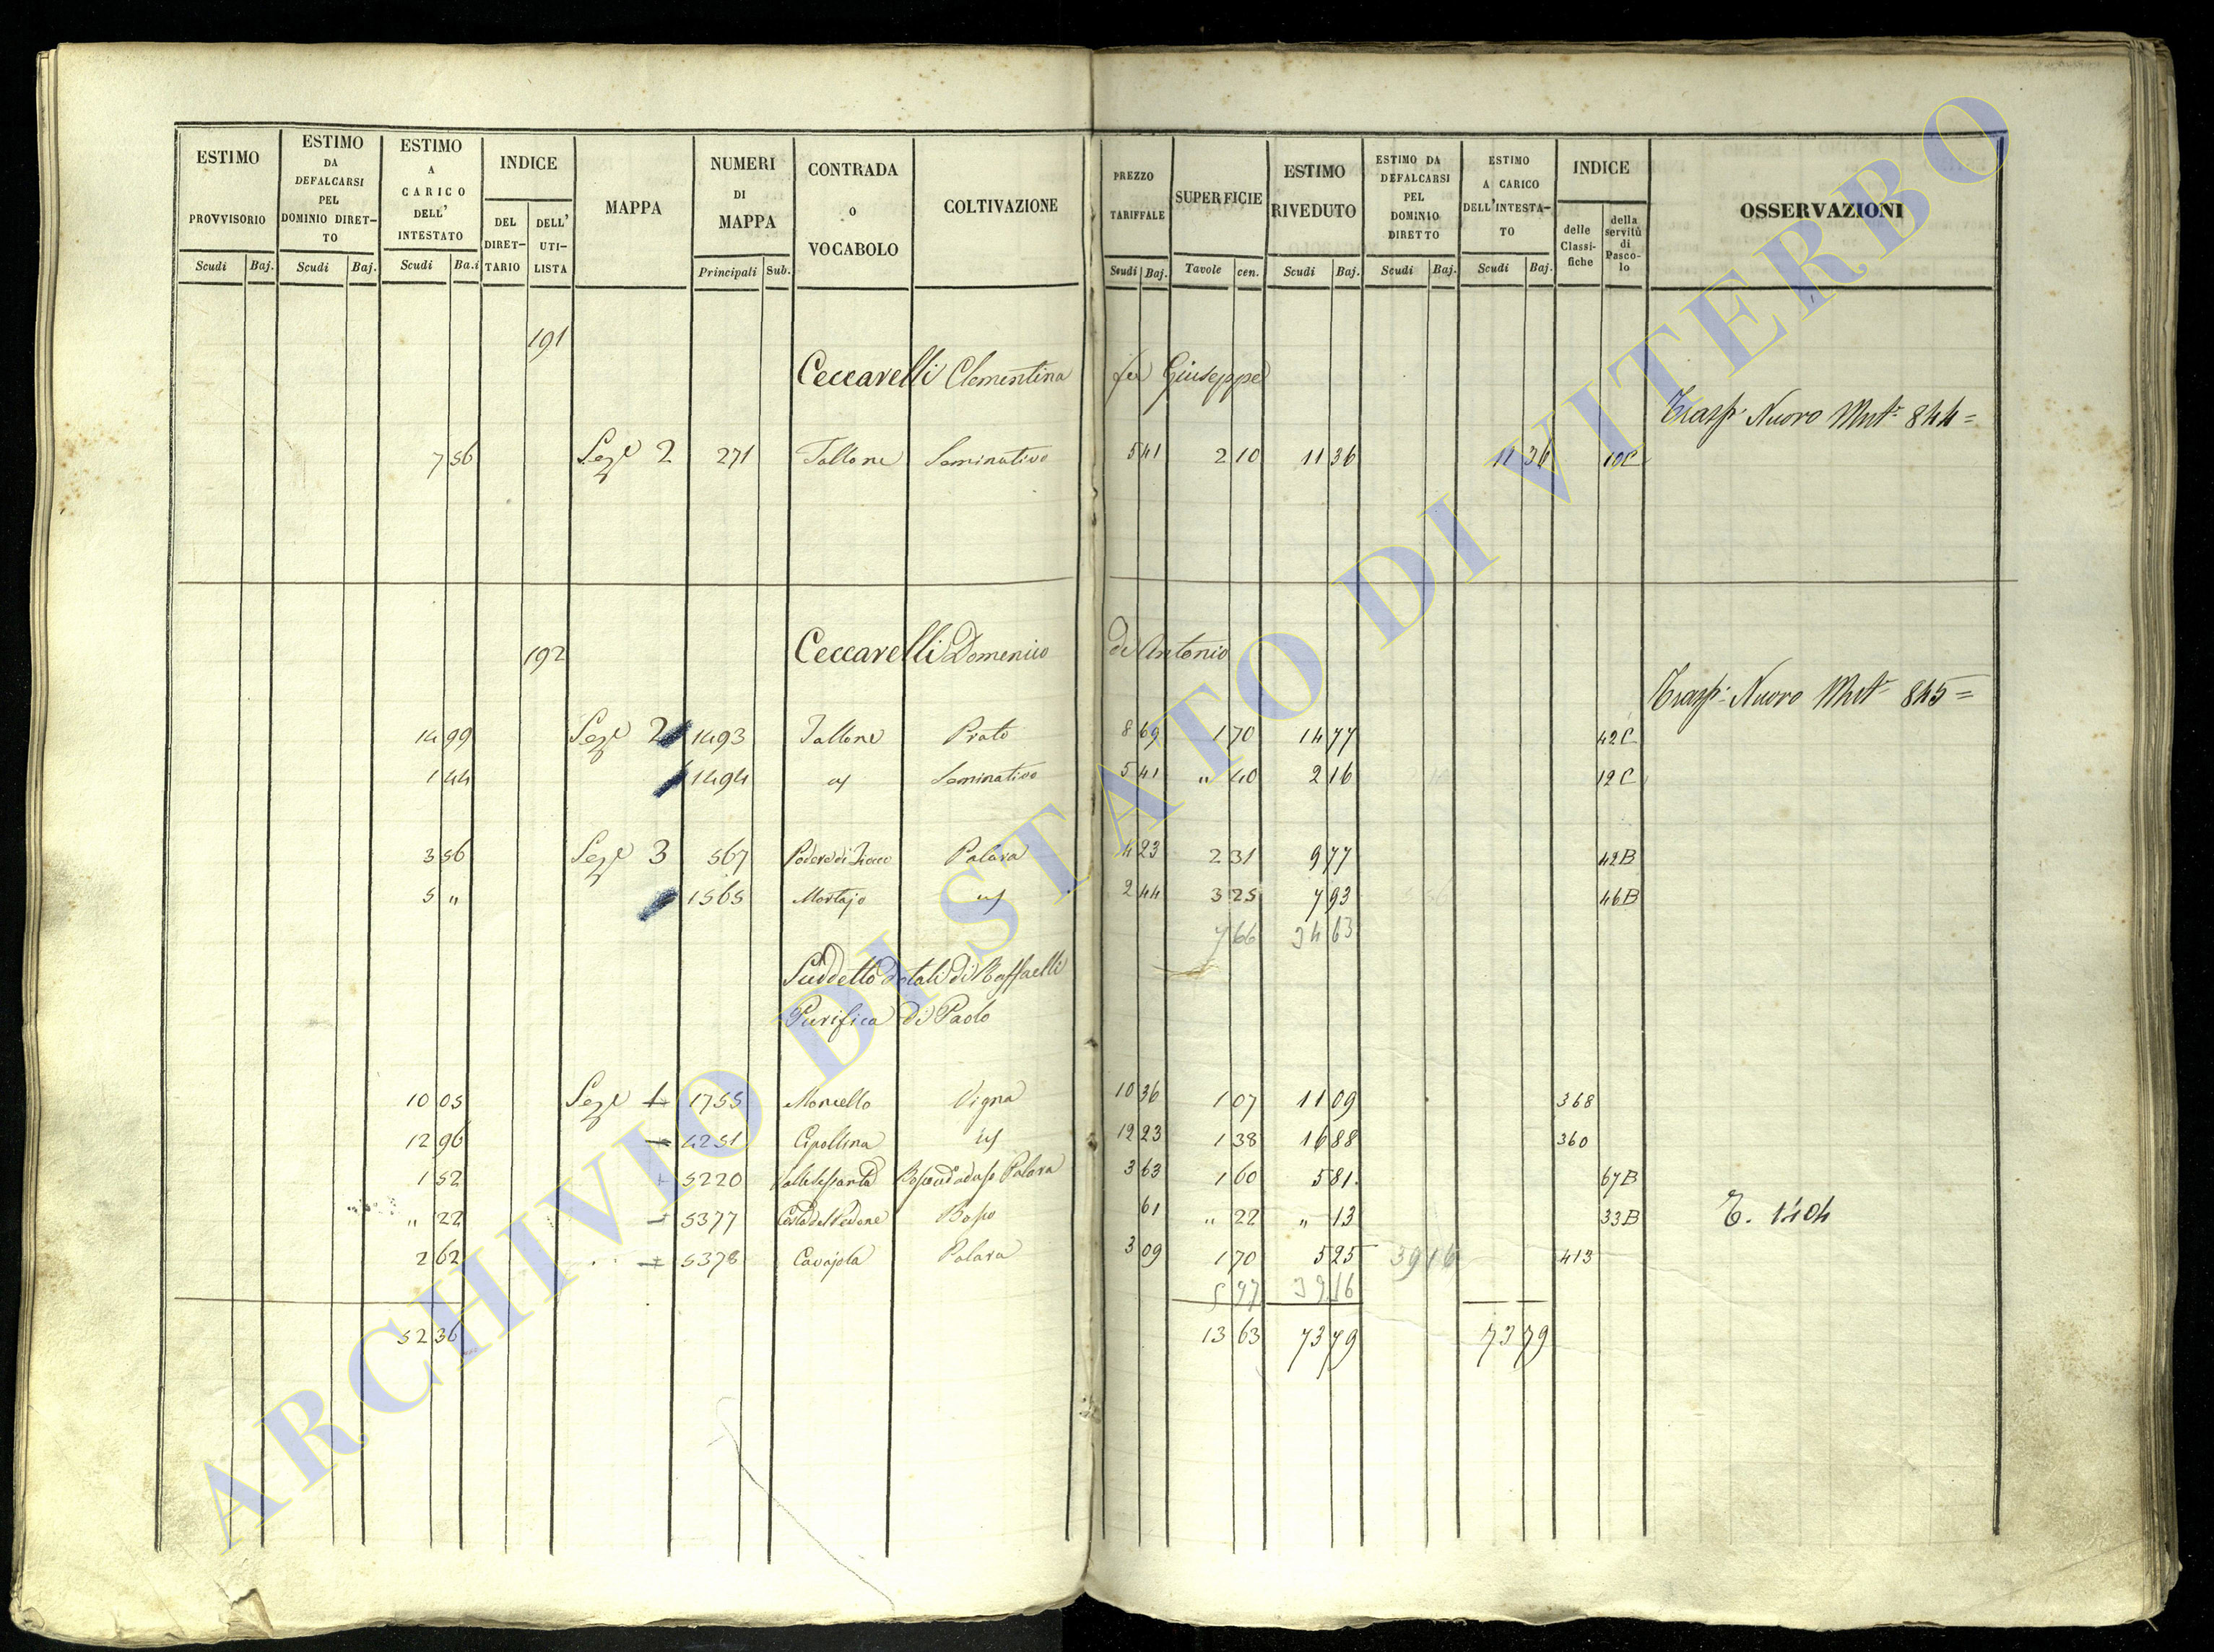 ESTIMO PROVVISORIO Scudi Baj.
ESTIMO DA DEFALCARSI PEL DOMINIO DIRET-TO Scudi Baj.
ESTIMO A CARICO DELL' INTESTATO Scudi Ba.i
INDICE DEL DIRET-TARIO DELL' UTI-LISTA
MAPPA
NUMERI DI MAPPA Principali Sub.
CONTRADA o VOCABOLO
COLTIVAZIONE
PREZZO TARIFFALE Scudi Baj.
SUPERFICIE Tavole cen.
ESTIMO RIVEDUTO Scudi Baj.
ESTIMO DA DEFALCARSI PEL DOMINIO DIRETTO Scudi Baj.
ESTIMO A CARICO DELL'INTESTA-TO Scudi Baj.
INDICE delle Classi-fiche della servitù di Pasco-lo
OSSERVAZIONI
191
Ceccarelli Clementina fu Giuseppe
Trasp. Nuovo Mut. 844=
7 56 Sez.e 2 271 Tallone Seminativo 5 41 2 10 11 36 11 36
192 Ceccarelli Domenico di Antonio
Trasp. Nuovo Mut. 845=
14 99 Sez.e 2 1493 Tallone Prato 8 69 1 70 14 77 42C
1 44 1494 Seminativo 5 41 " 40 2 16 12C
3 56 Sez.e 3 567 Podere di Palara 4 23 2 31 9 77 42B
5 " 1565 Mortajo 2 44 3 25 7 93 46B
7 66 34 63
Suddetto dotali di Raffaelli
Purifica di Paolo
10 05 Sez.e 1 1755 Moncello Vigna 10 36 1 07 11 09 368
12 96 4251 Cipollina 12 23 1 38 16 88 360
1 52 5220 Palara 3 63 1 60 5 81 67B
" 22 5377 Costa del Bosco 61 " 22 " 13 33B T. 1404
2 62 5378 Cavajola Palara 3 09 1 70 5 25 39 16 413
5 97 39 16
52 36 13 63 73 79 73 79
ARCHIVIO DI STATO DI VITERBO